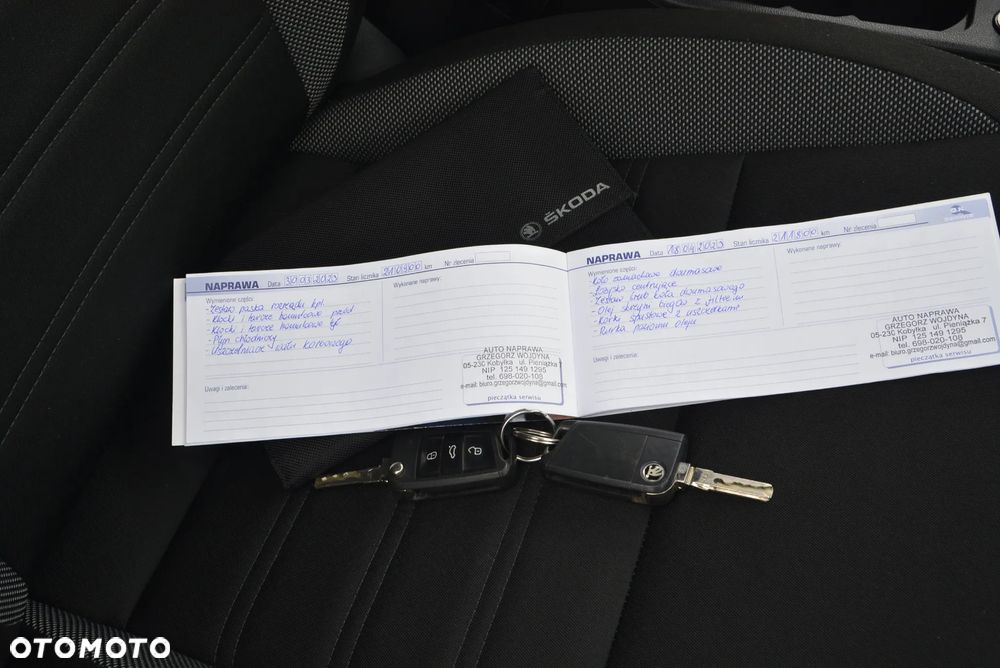 ŠKODA
NAPRAWA Data 30.03.2023 Stan licznika 210900 km Nr zlecenia
Wymienione części: Wykonane naprawy:
- Zestaw paska rozrządu kpl.
- Klocki i tarcze hamulcowe przód
- Klocki i tarcze hamulcowe tył
- Płyn chłodniczy
- Uszczelniacz wału korbowego
Uwagi i zalecenia:
AUTO NAPRAWA
GRZEGORZ WOJDYNA
05-230 Kobyłka ul. Pieniążka 7
NIP 125 149 1295
tel. 698-020-108
e-mail: biuro.grzegorzwojdyna@gmail.com
pieczątka serwisu
NAPRAWA Data 18.04.2023 Stan licznika 211800 km Nr zlecenia
Wymienione części: Wykonane naprawy:
- Koło zamachowe dwumasowe
- Łożysko centrujące
- Zestaw śrub koła dwumasowego
- Olej skrzyni biegów z filtrem
- Korki spustowe z uszczelkami
- Rurka poziomu oleju
Uwagi i zalecenia:
AUTO NAPRAWA
GRZEGORZ WOJDYNA
05-230 Kobyłka ul. Pieniążka 7
NIP 125 149 1295
tel. 698-020-108
e-mail: biuro.grzegorzwojdyna@gmail.com
pieczątka serwisu
OTOMOTO